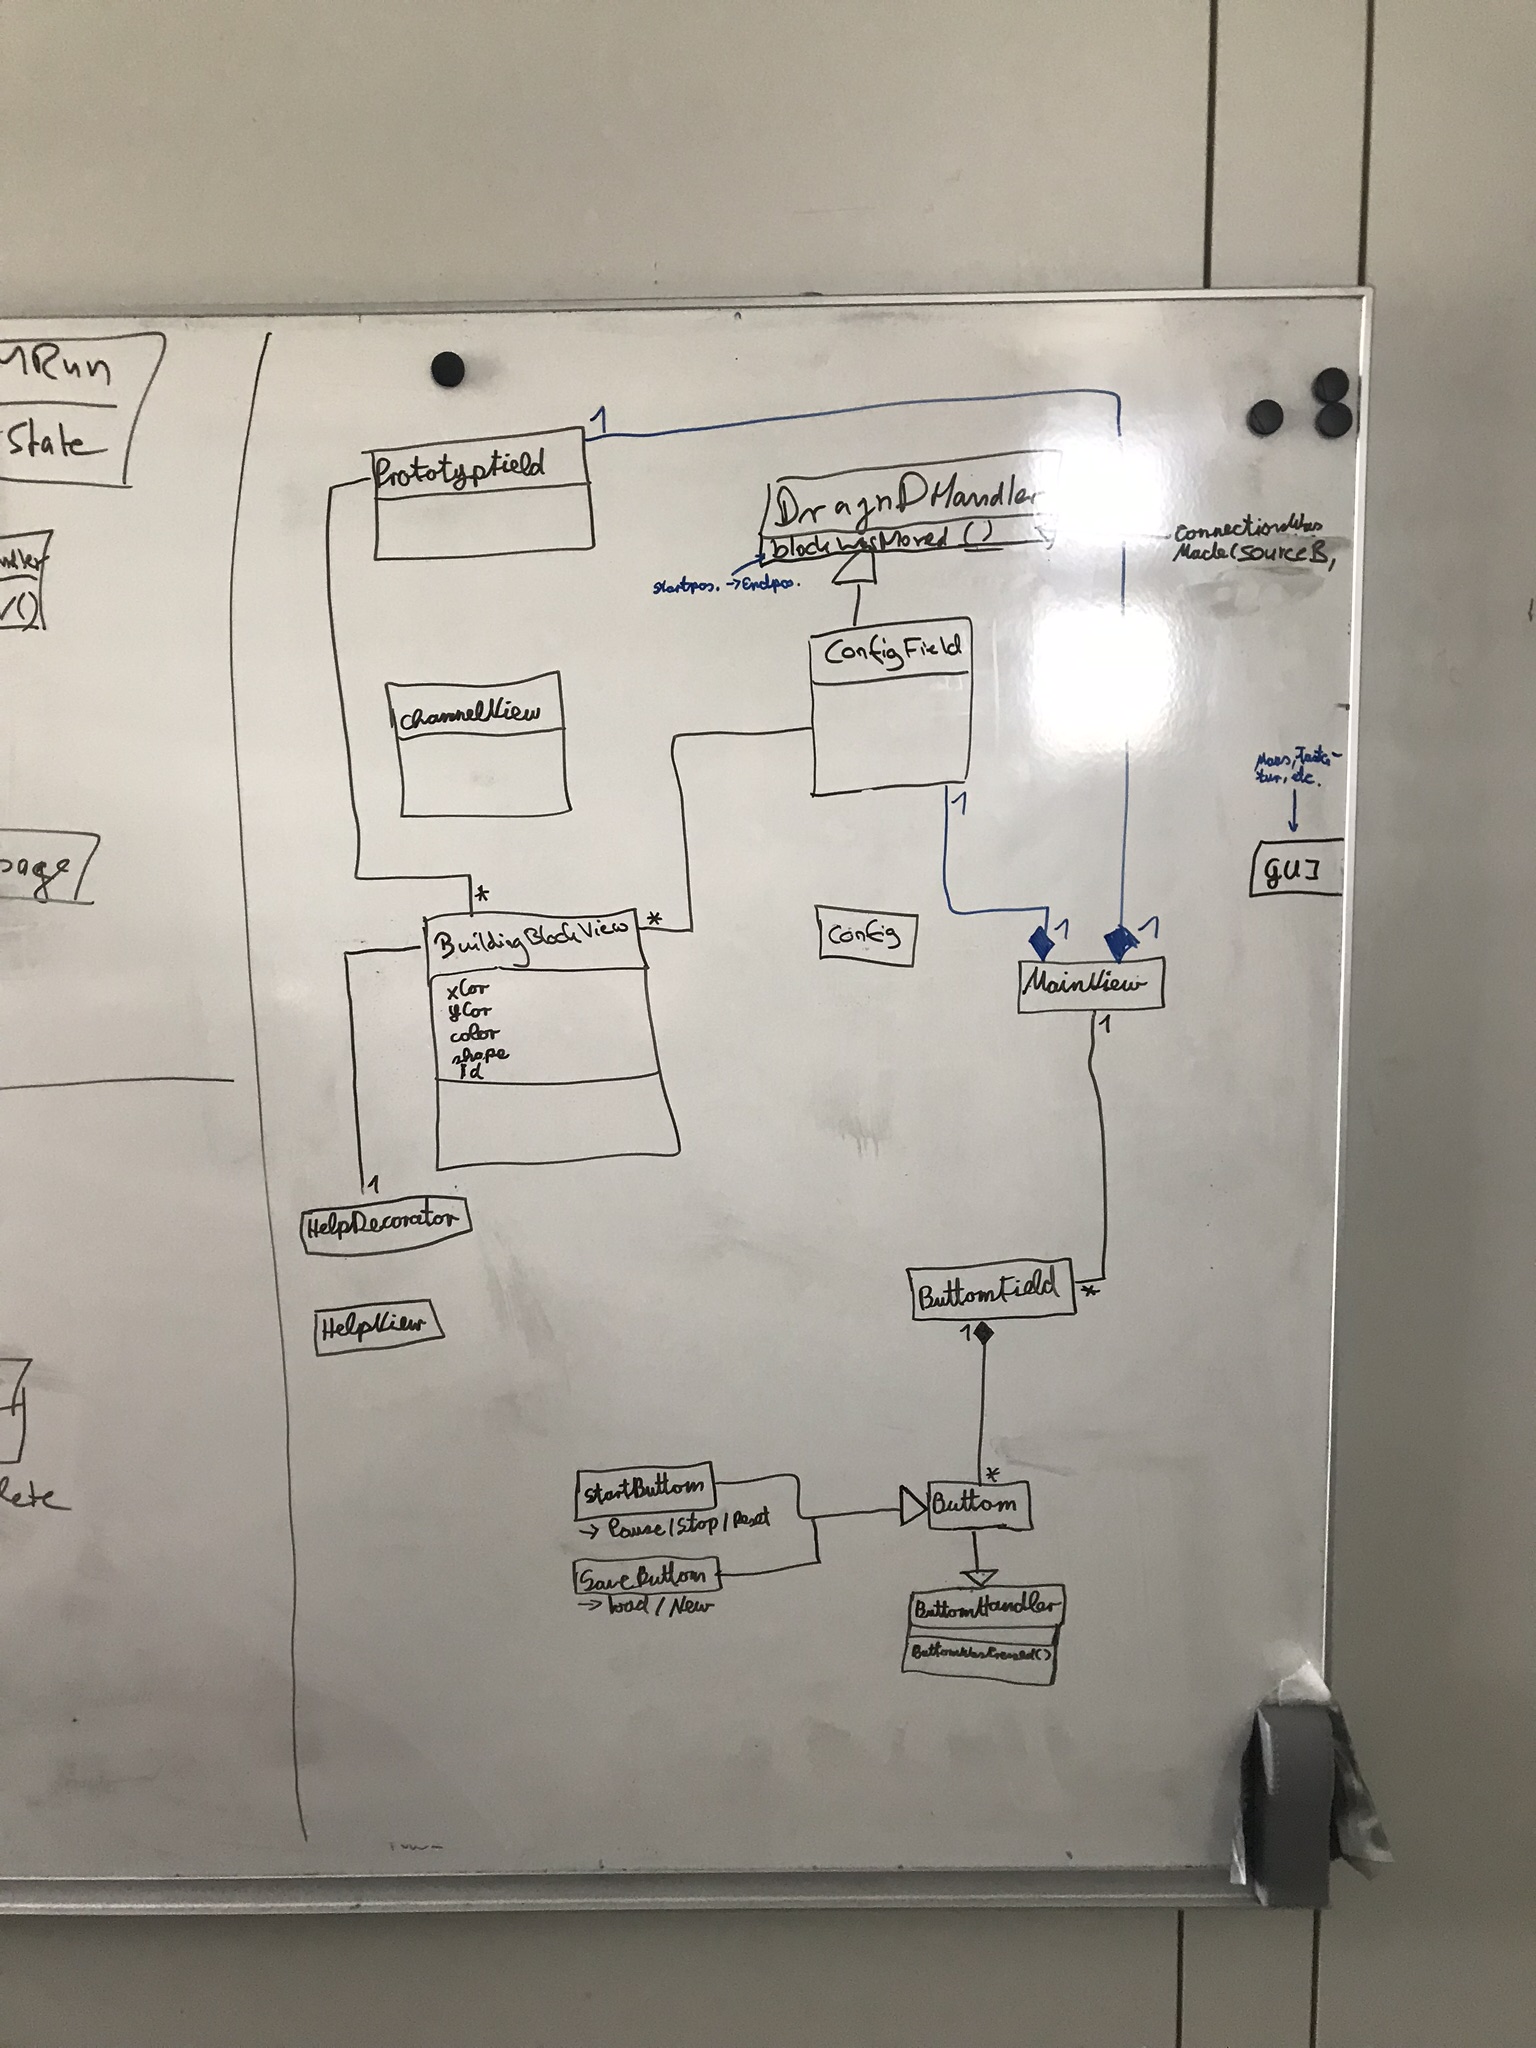 MRun
State
ndler
v()
page
lete
1
PrototypField
DragnDHandler
blockWasMoved ()
Startpos. -> Endpos.
ConnectionWas
Made(SourceB,
ConfigField
ChannelView
1
Maus, Tasta-
tur, etc.
GUI
*
*
BuildingBlockView
xCor
yCor
color
shape
Id
Config
1
1
MainView
1
1
HelpDecorator
HelpView
ButtomField
*
1
*
StartButtom
-> Pause/Stop/Reset
SaveButtom
-> load / New
Buttom
ButtomHandler
ButtomWasPressed()